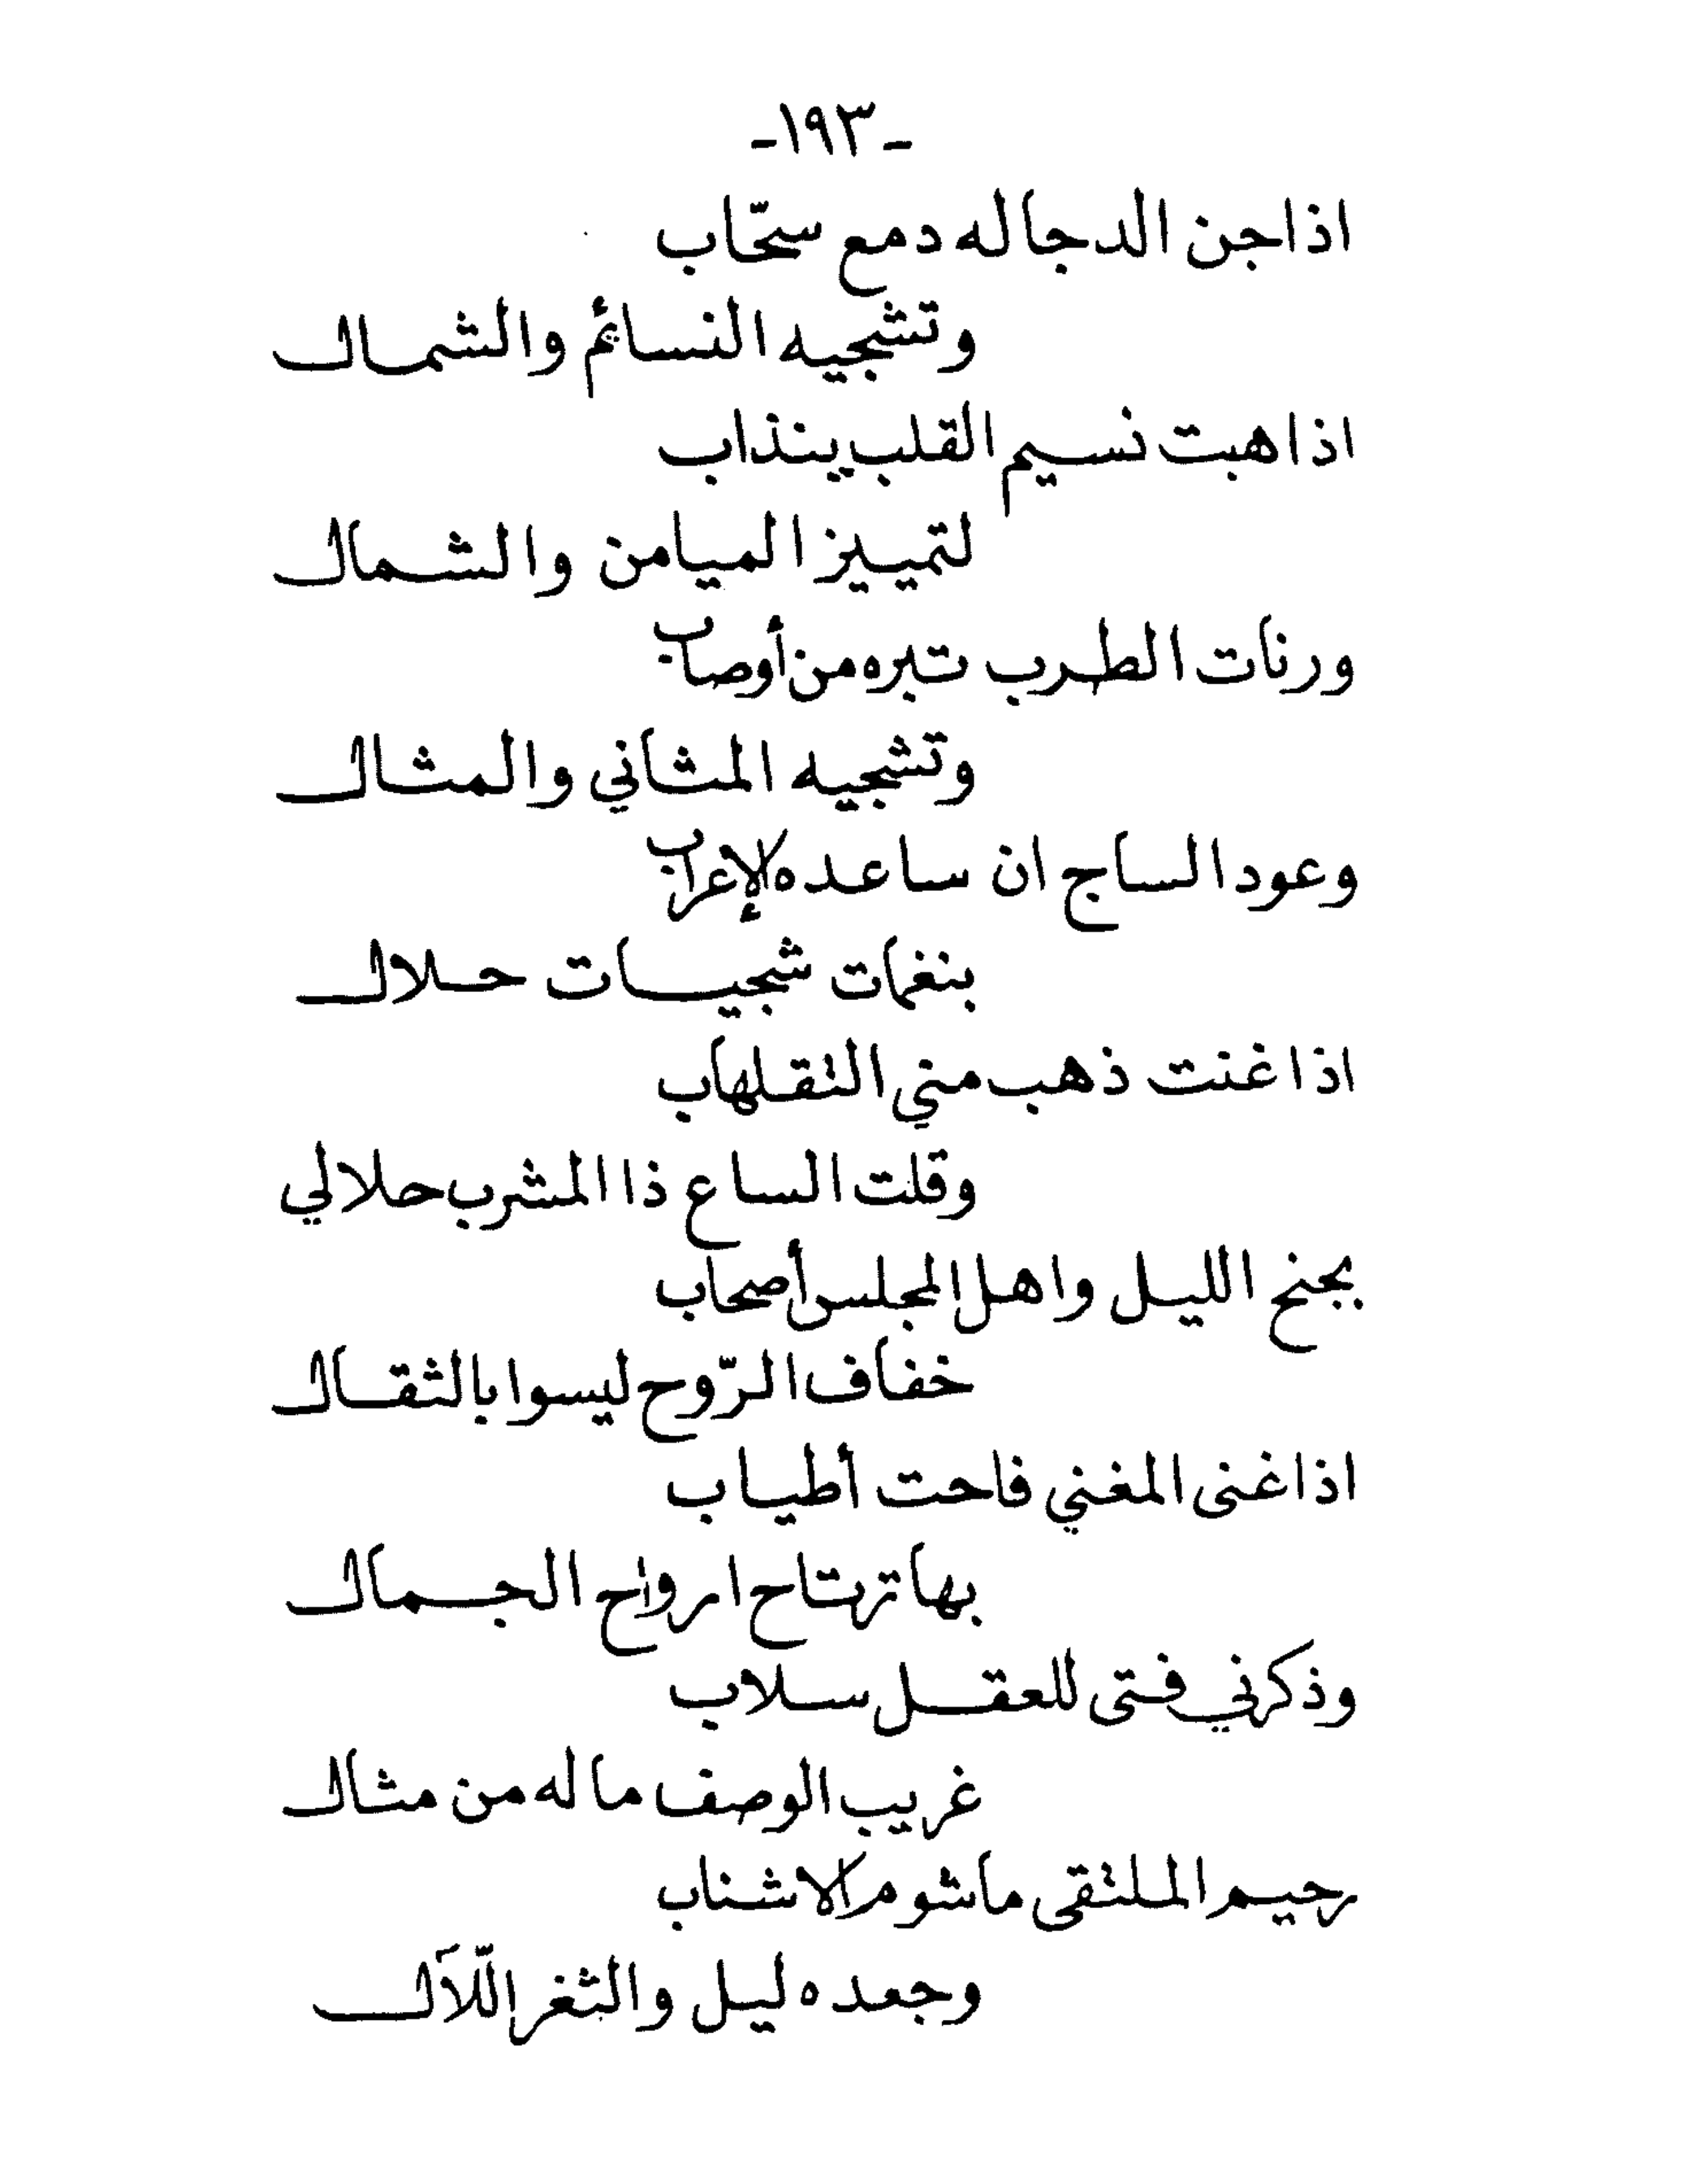 -١٩٣-
اذا جن الدجا له دمع سحّاب
وتشجيه النسائم والشمال
اذا هبت نسيم القلب ينذاب
لتمييز الميامن والشمال
ورنات الطرب تبره من أوصاب
وتشجيه المثاني والمثال
وعود الساج ان ساعده لإعراب
بنغمات شجيات حلال
اذا غنت ذهب مني التقلهاب
وقلت الساع ذا المشرب حلالي
بجنح الليل واهل المجلس أصحاب
خفاف الرّوح ليسوا بالثقال
اذا غنى المغني فاحت أطياب
بها ترتاح ارواح الجمال
وذكرني فتى للعقل سلاب
غريب الوصف ما له من مثال
رحيم الملتقى ماشوم الاشناب
وجعده ليل والثغر اللّآل